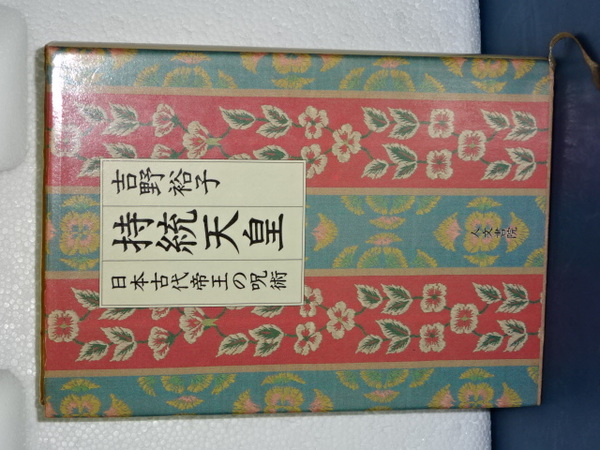 吉野裕子
持統天皇
日本古代帝王の呪術
人文書院